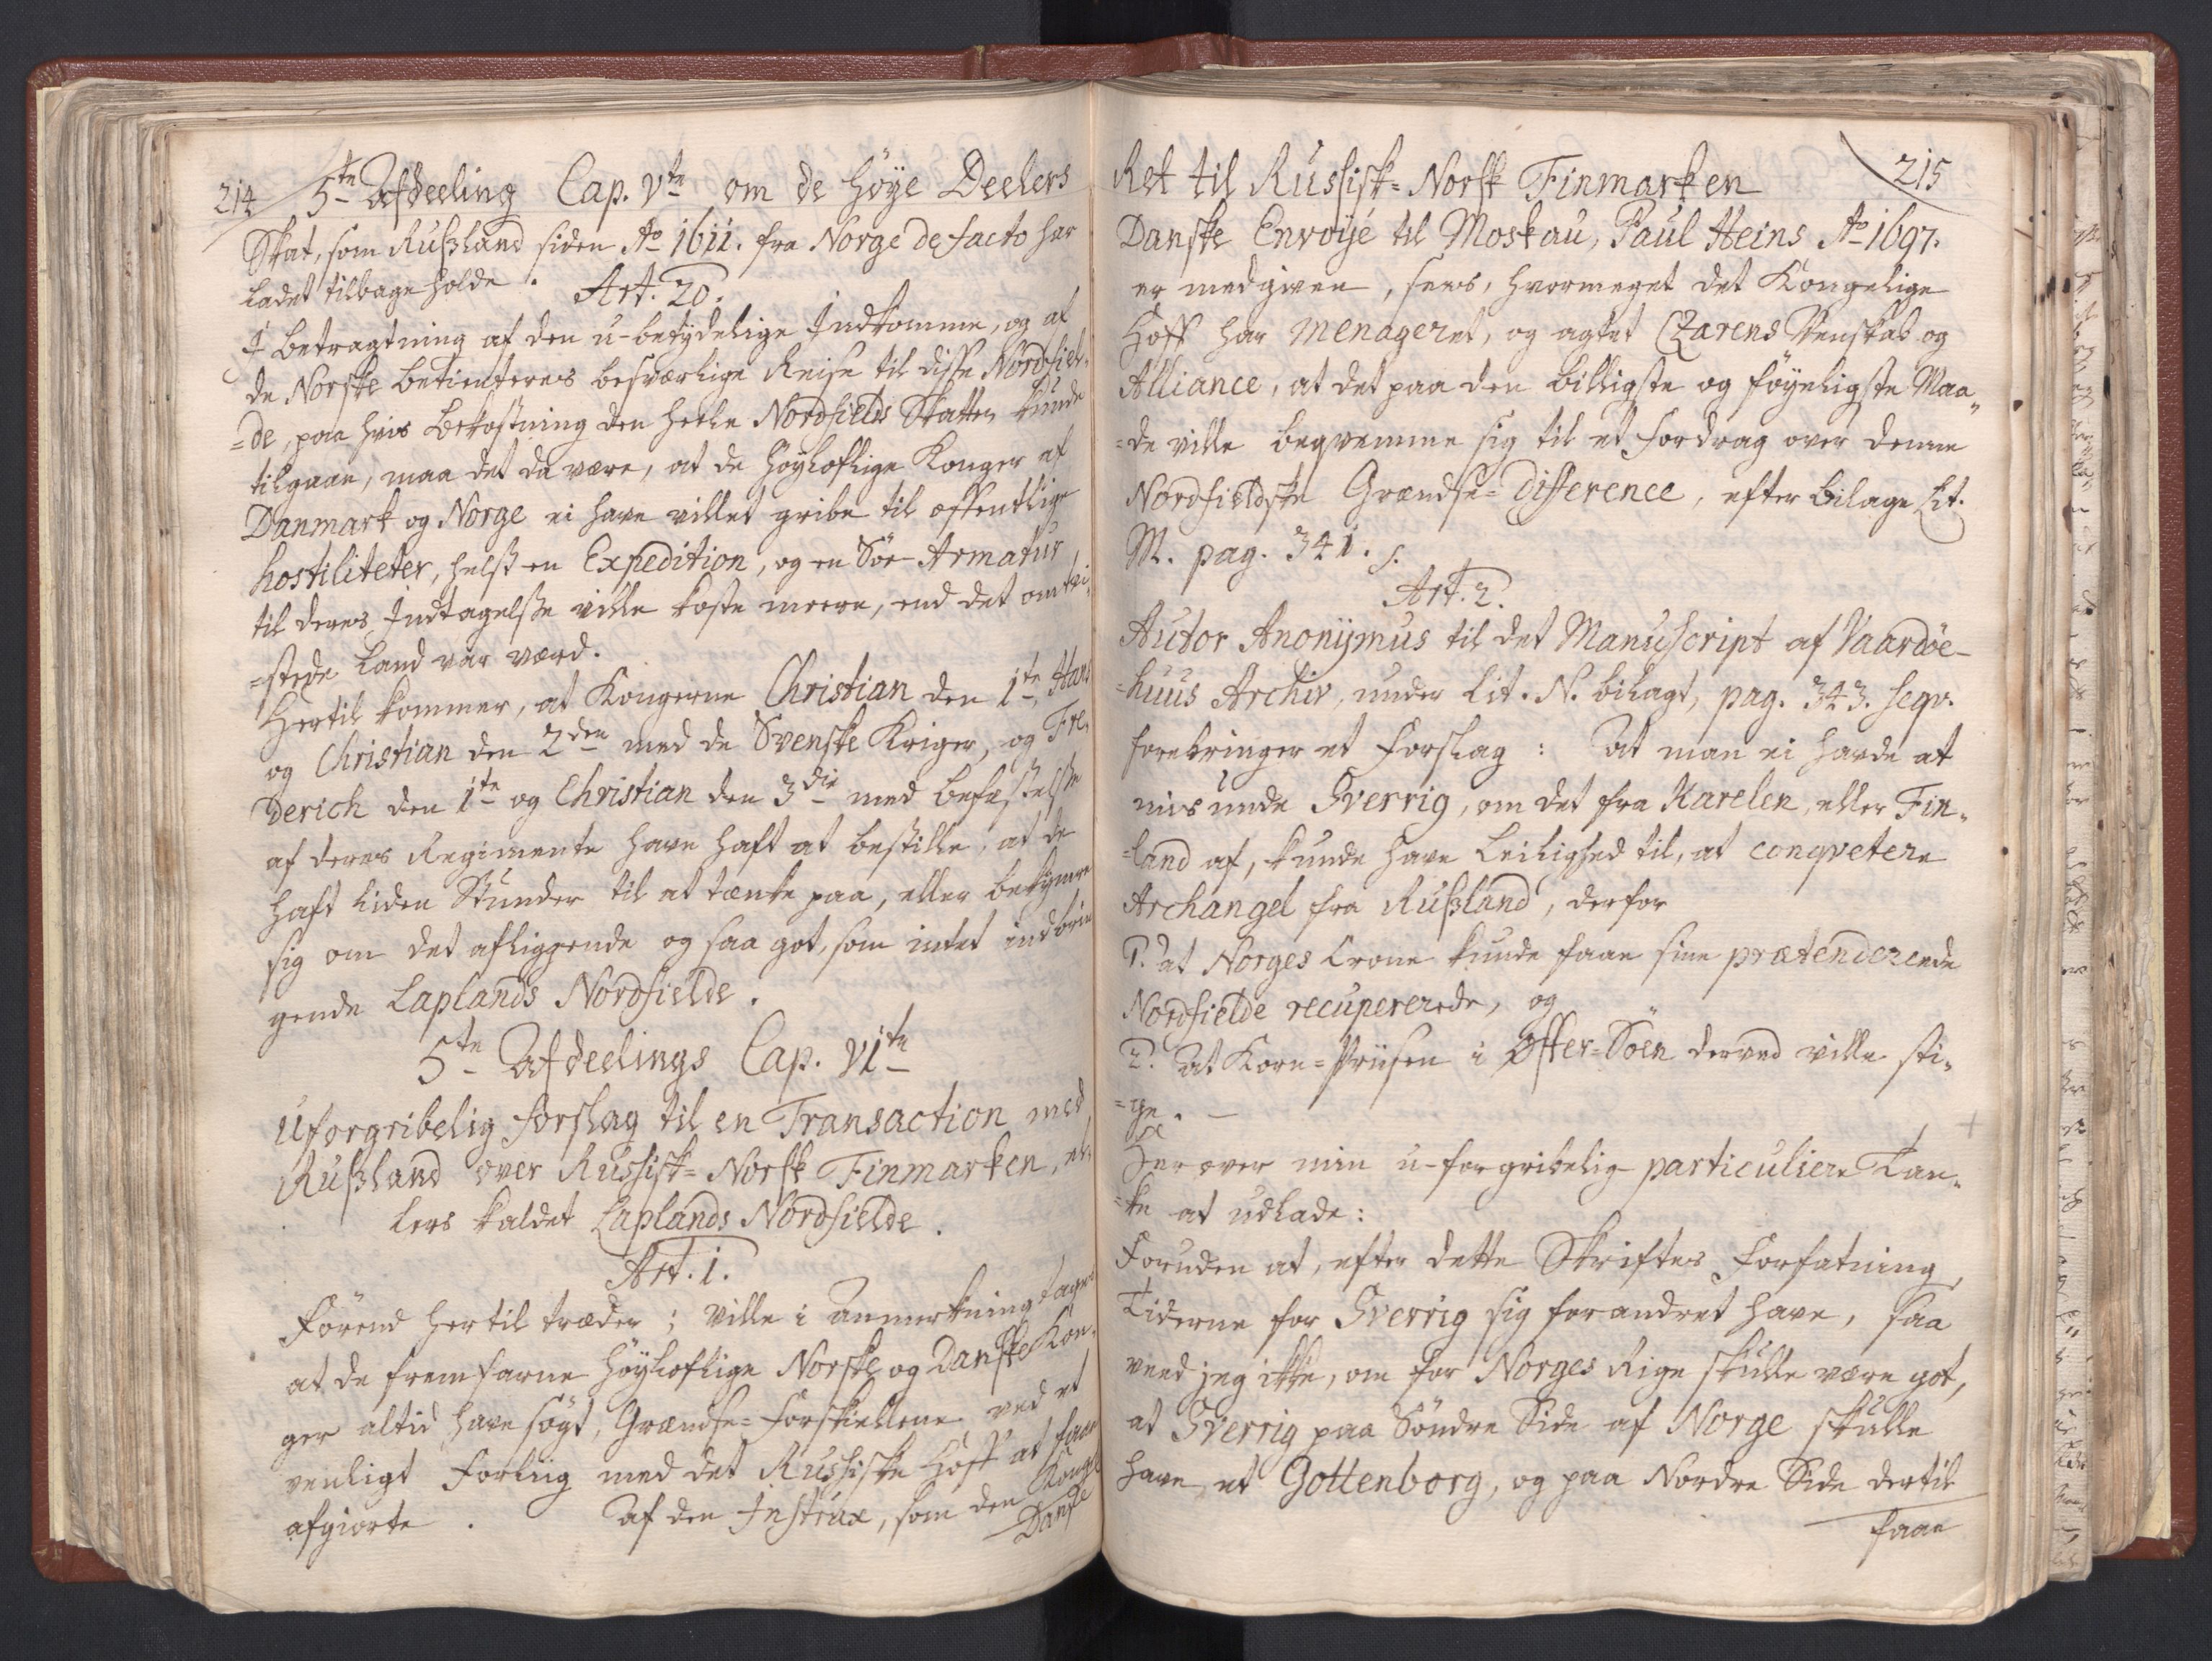 214 5te Afdeeling Cap. Vte om de Höÿe Deelers
Skat, som Rußland siden Ao 1611. fra Norge de facto har
ladet tilbage holde.
Art. 20.
I betragtning af den u-betÿdelige Indkomme, og af
de Norske betienteres besværlige Reise til disse Nordfiel-
=de, paa hvis bekostning den heele Nordfields Skatten kunde
tilgaae, maa det da være, at de höÿloflige Konger af
Danmark og Norge ei have villet gribe til offentlige
hostiliteter, helst en Expedition, og en Söe Armatur
til deres Indtagelse ville koste meere, end det omtvi-
=stede Land var værd.
Hertil kommer, at Kongerne Christian den 1te, Hans
og Christian den 2den med de Svenske Kriger, og Fre-
derich den 1te og Christian den 3die med befæstelse
af deres Regimente have haft at bestille, at de
haft liden Stunder til at tænke paa, eller bekÿmre
sig om det afliggende og saa got, som intet indbrin
gende Laplands Nordfielde.
5te Afdeelings Cap. VIte
Uforgribelig forslag til en Transaction med
Rußland over Russisk=Norsk Finmarken, el-
lers kaldet Laplands Nordfielde.
Art. 1.
Förend hertil træder; ville i anmerkning tages
at de fremfarne höÿloflige Norske og Danske Kon-
ger altid have sögt, Grændse=forskiellene ved et
venligt forliig med det Russiske Hoff at faae
afgiorte. Af den Instrux, som den Kongl.
Danske
Ret til Russisk=Norsk Finmarken 215
Danske Envoÿé til Moskau, Paul Heins Ao 1697.
er medgiven, sees, hvormeget det Kongelige
Hoff har menageret, og agtet Czarens Venskab og
Alliance, at det paa den billigste og föÿeligste Maa-
=de ville beqvemme sig til et fordrag over denne
Nordfieldske Grændse=Difference, efter bilage Lit.
M. pag. 341. s.
Art. 2.
Autor Anonÿmus til det Manuscript af Vaardöe-
=huus Archiv, under Lit. N. bilagt, pag. 343. seqv.
forebringer et forslag: At man ei havde at
mis unde Sverrig, om det fra Karelen, eller Fin-
=land af, kunde have Leilighed til, at conqvetere
Archangel fra Rußland, derfor
1. at Norges Crone kunde faae sine prætenderende
Nordfielde recupererede, og
2. at Korn=Priisen i Öster=Söen derved ville sti-
=ge. -
Her over min u-forgribelig particuliere Tan-
=ke at udlade:
Foruden at, efter dette Skriftes Forfatning,
Tiderne for Sverrig sig forandret have, saa
veed jeg ikke, om for Norges Rige skulle være got,
at Sverrig paa Söndre Side af Norge skulle
have et Gottenborg, og paa Nordre Side dertil
faae